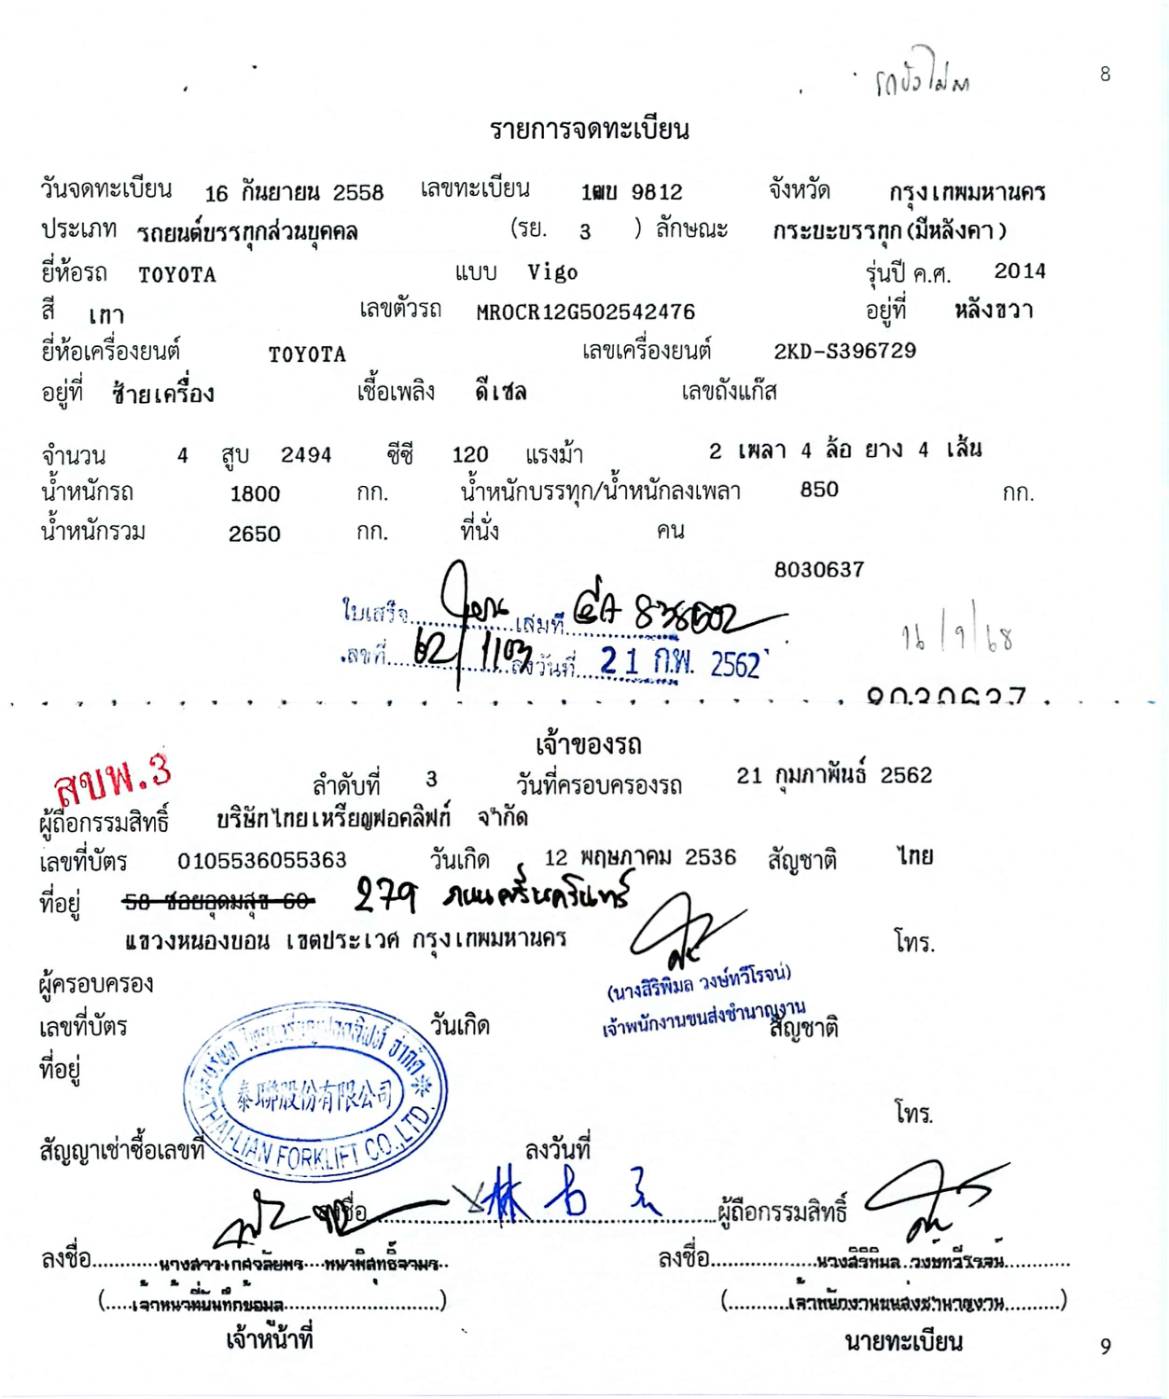 8
รถยังไม่มา
รายการจดทะเบียน
วันจดทะเบียน 16 กันยายน 2558 เลขทะเบียน 1ฒบ 9812 จังหวัด กรุงเทพมหานคร
ประเภท รถยนต์บรรทุกส่วนบุคคล (รย. 3 ) ลักษณะ กระบะบรรทุก(มีหลังคา)
ยี่ห้อรถ TOYOTA แบบ Vigo รุ่นปี ค.ศ. 2014
สี เทา เลขตัวรถ MR0CR12G502542476 อยู่ที่ หลังขวา
ยี่ห้อเครื่องยนต์ TOYOTA เลขเครื่องยนต์ 2KD-S396729
อยู่ที่ ซ้ายเครื่อง เชื้อเพลิง ดีเซล เลขถังแก๊ส
จำนวน 4 สูบ 2494 ซีซี 120 แรงม้า 2 เพลา 4 ล้อ ยาง 4 เส้น
น้ำหนักรถ 1800 กก. น้ำหนักบรรทุก/น้ำหนักลงเพลา 850 กก.
น้ำหนักรวม 2650 กก. ที่นั่ง คน
8030637
ใบเสร็จ เล่มที่ 838602
เลขที่ 62/1103 ลงวันที่ 21 ก.พ. 2562
16/9/68
8030637
เจ้าของรถ
สบพ.3
ลำดับที่ 3 วันที่ครอบครองรถ 21 กุมภาพันธ์ 2562
ผู้ถือกรรมสิทธิ์ บริษัทไทยเหรียญฟอคลิฟท์ จำกัด
เลขที่บัตร 0105536055363 วันเกิด 12 พฤษภาคม 2536 สัญชาติ ไทย
ที่อยู่ 58 ซอยอุดมสุข 60 279 ถนนศรีนครินทร์
แขวงหนองบอน เขตประเวศ กรุงเทพมหานคร โทร.
ผู้ครอบครอง
(นางสิริพิมล วงษ์ทวีโรจน์)
เจ้าพนักงานขนส่งชำนาญงาน
เลขที่บัตร วันเกิด สัญชาติ
ที่อยู่
泰聯股份有限公司
THAI-LIAN FORKLIFT CO.,LTD.
โทร.
สัญญาเช่าซื้อเลขที่ ลงวันที่
ลงชื่อ ผู้ถือกรรมสิทธิ์
ลงชื่อ ลงชื่อ นางสิริพิมล วงษ์ทวีโรจน์
(เจ้าหน้าที่บันทึกข้อมูล) (เจ้าพนักงานขนส่งชำนาญงาน)
เจ้าหน้าที่ นายทะเบียน
9